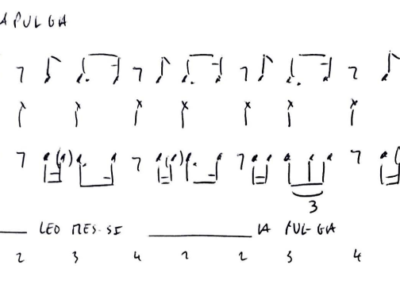 A PULGA
3
LEO MES-SI LA PUL-GA
2 3 4 1 2 3 4